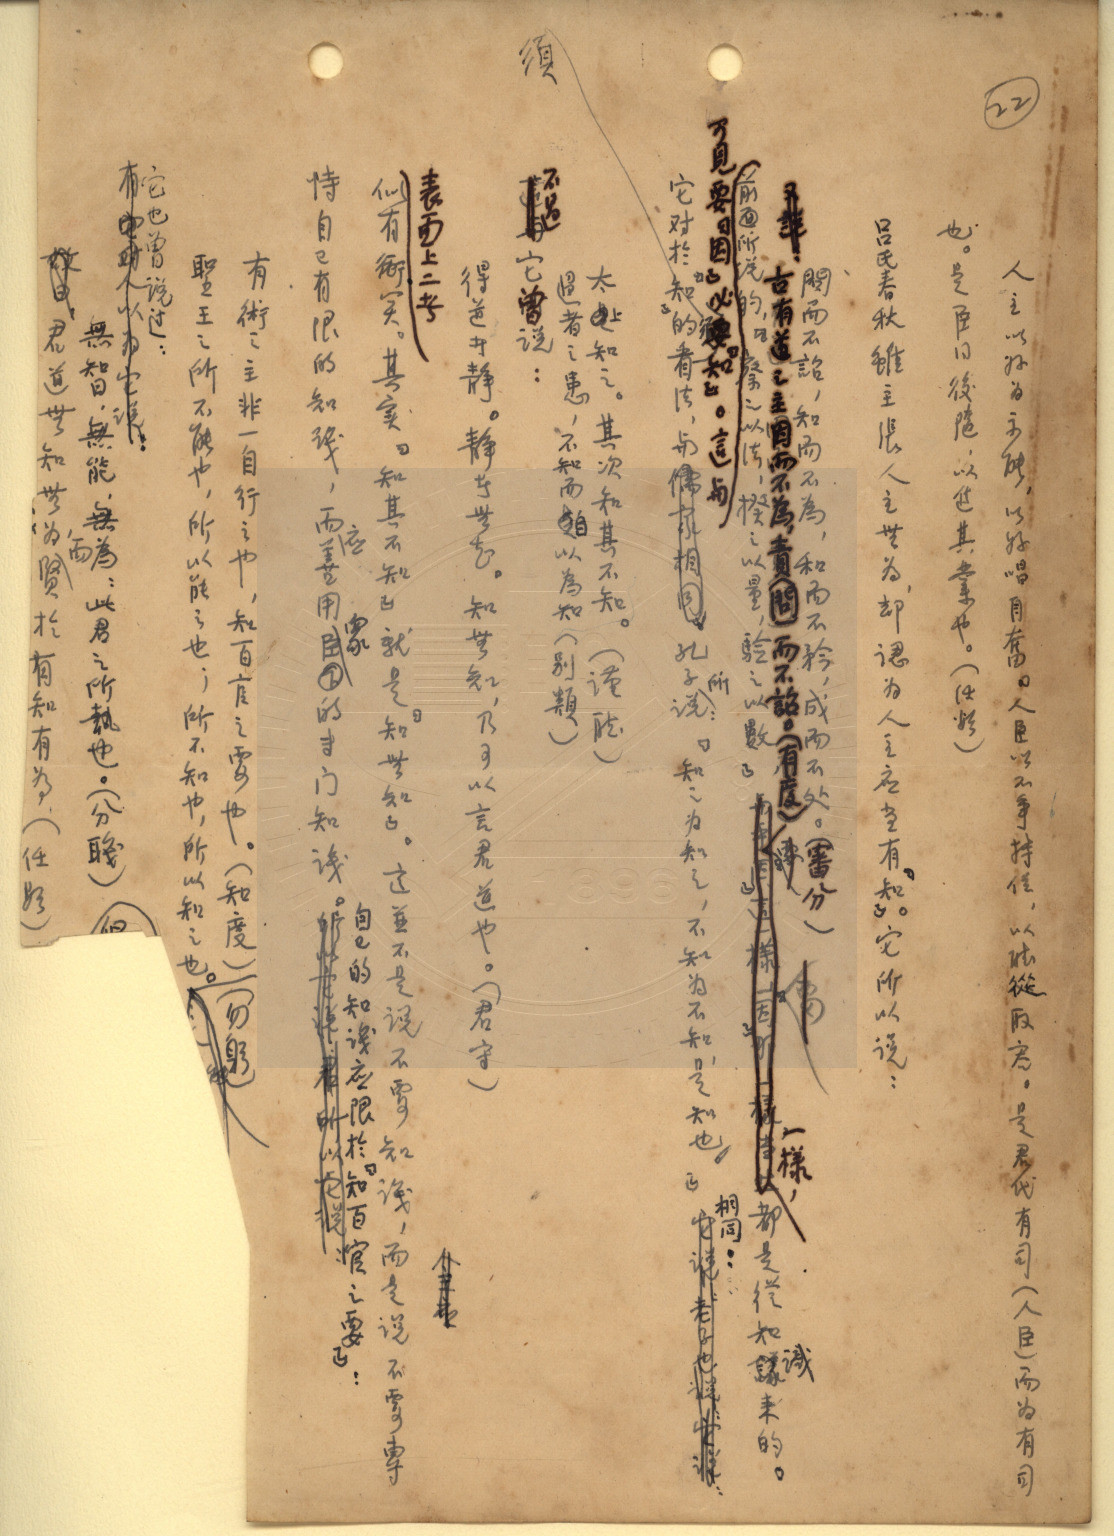 22
須
人主以好為示能，以好唱自奮。人臣以不爭持位，以聽從取容。是君代有司（人臣）而為有司
也。是臣得後隨，以進其業也。（任數）
呂氏春秋雖主張人主無為，却認为人主应当有「知」。它所以说：
問而不詔，知而不為，和而不矜，成而不处。（審分）
古有道之主因而不為，責而不詔。（有度）
前面所说的，「察之以法，揆之以量，驗之以數」
一樣，都是從知識来的。
可見要「因」必須要「知」。這與
它对於「知」的看法，与儒家相同。孔子所说：「知之为知之，不知为不知，是知也。」
相同：
太上知之。其次知其不知。（謹聽）
過者之患，不知而自以為知（別類）
不過它曾说：
得道者静。静者無知。知無知，乃可以言君道也。（君守）
表面上二者
似有衝突。其实「知其不知」就是「知無知」。这並不是说不要知識，而是说不要專
恃自己有限的知識，而应善用眾的专门知識。自己的知識应限於「知百官之要」：
有術之主非一自行之也，知百官之要也。（知度）
聖王之所不能也，所以能之也；所不知也，所以知之也。（勿躬）
它也曾说过：
無智，無能，無為：此君之所執也。（分職）
君道無知無为，而賢於有知有為，（任數）